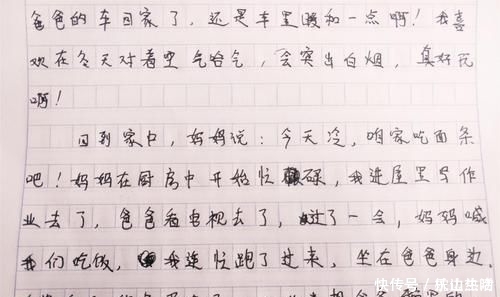 爸爸的车回家了，还是车里暖和一点啊！我喜
欢在冬天对着空气哈气，会突出白烟，真好玩
啊！
回到家中，妈妈说：今天冷，咱家吃面条
吧！妈妈在厨房中开始忙碌，我进屋里写作
业去了，爸爸看电视去了，过了一会，妈妈喊
我们吃饭，我连忙跑了过来，坐在爸爸身边
快传号/